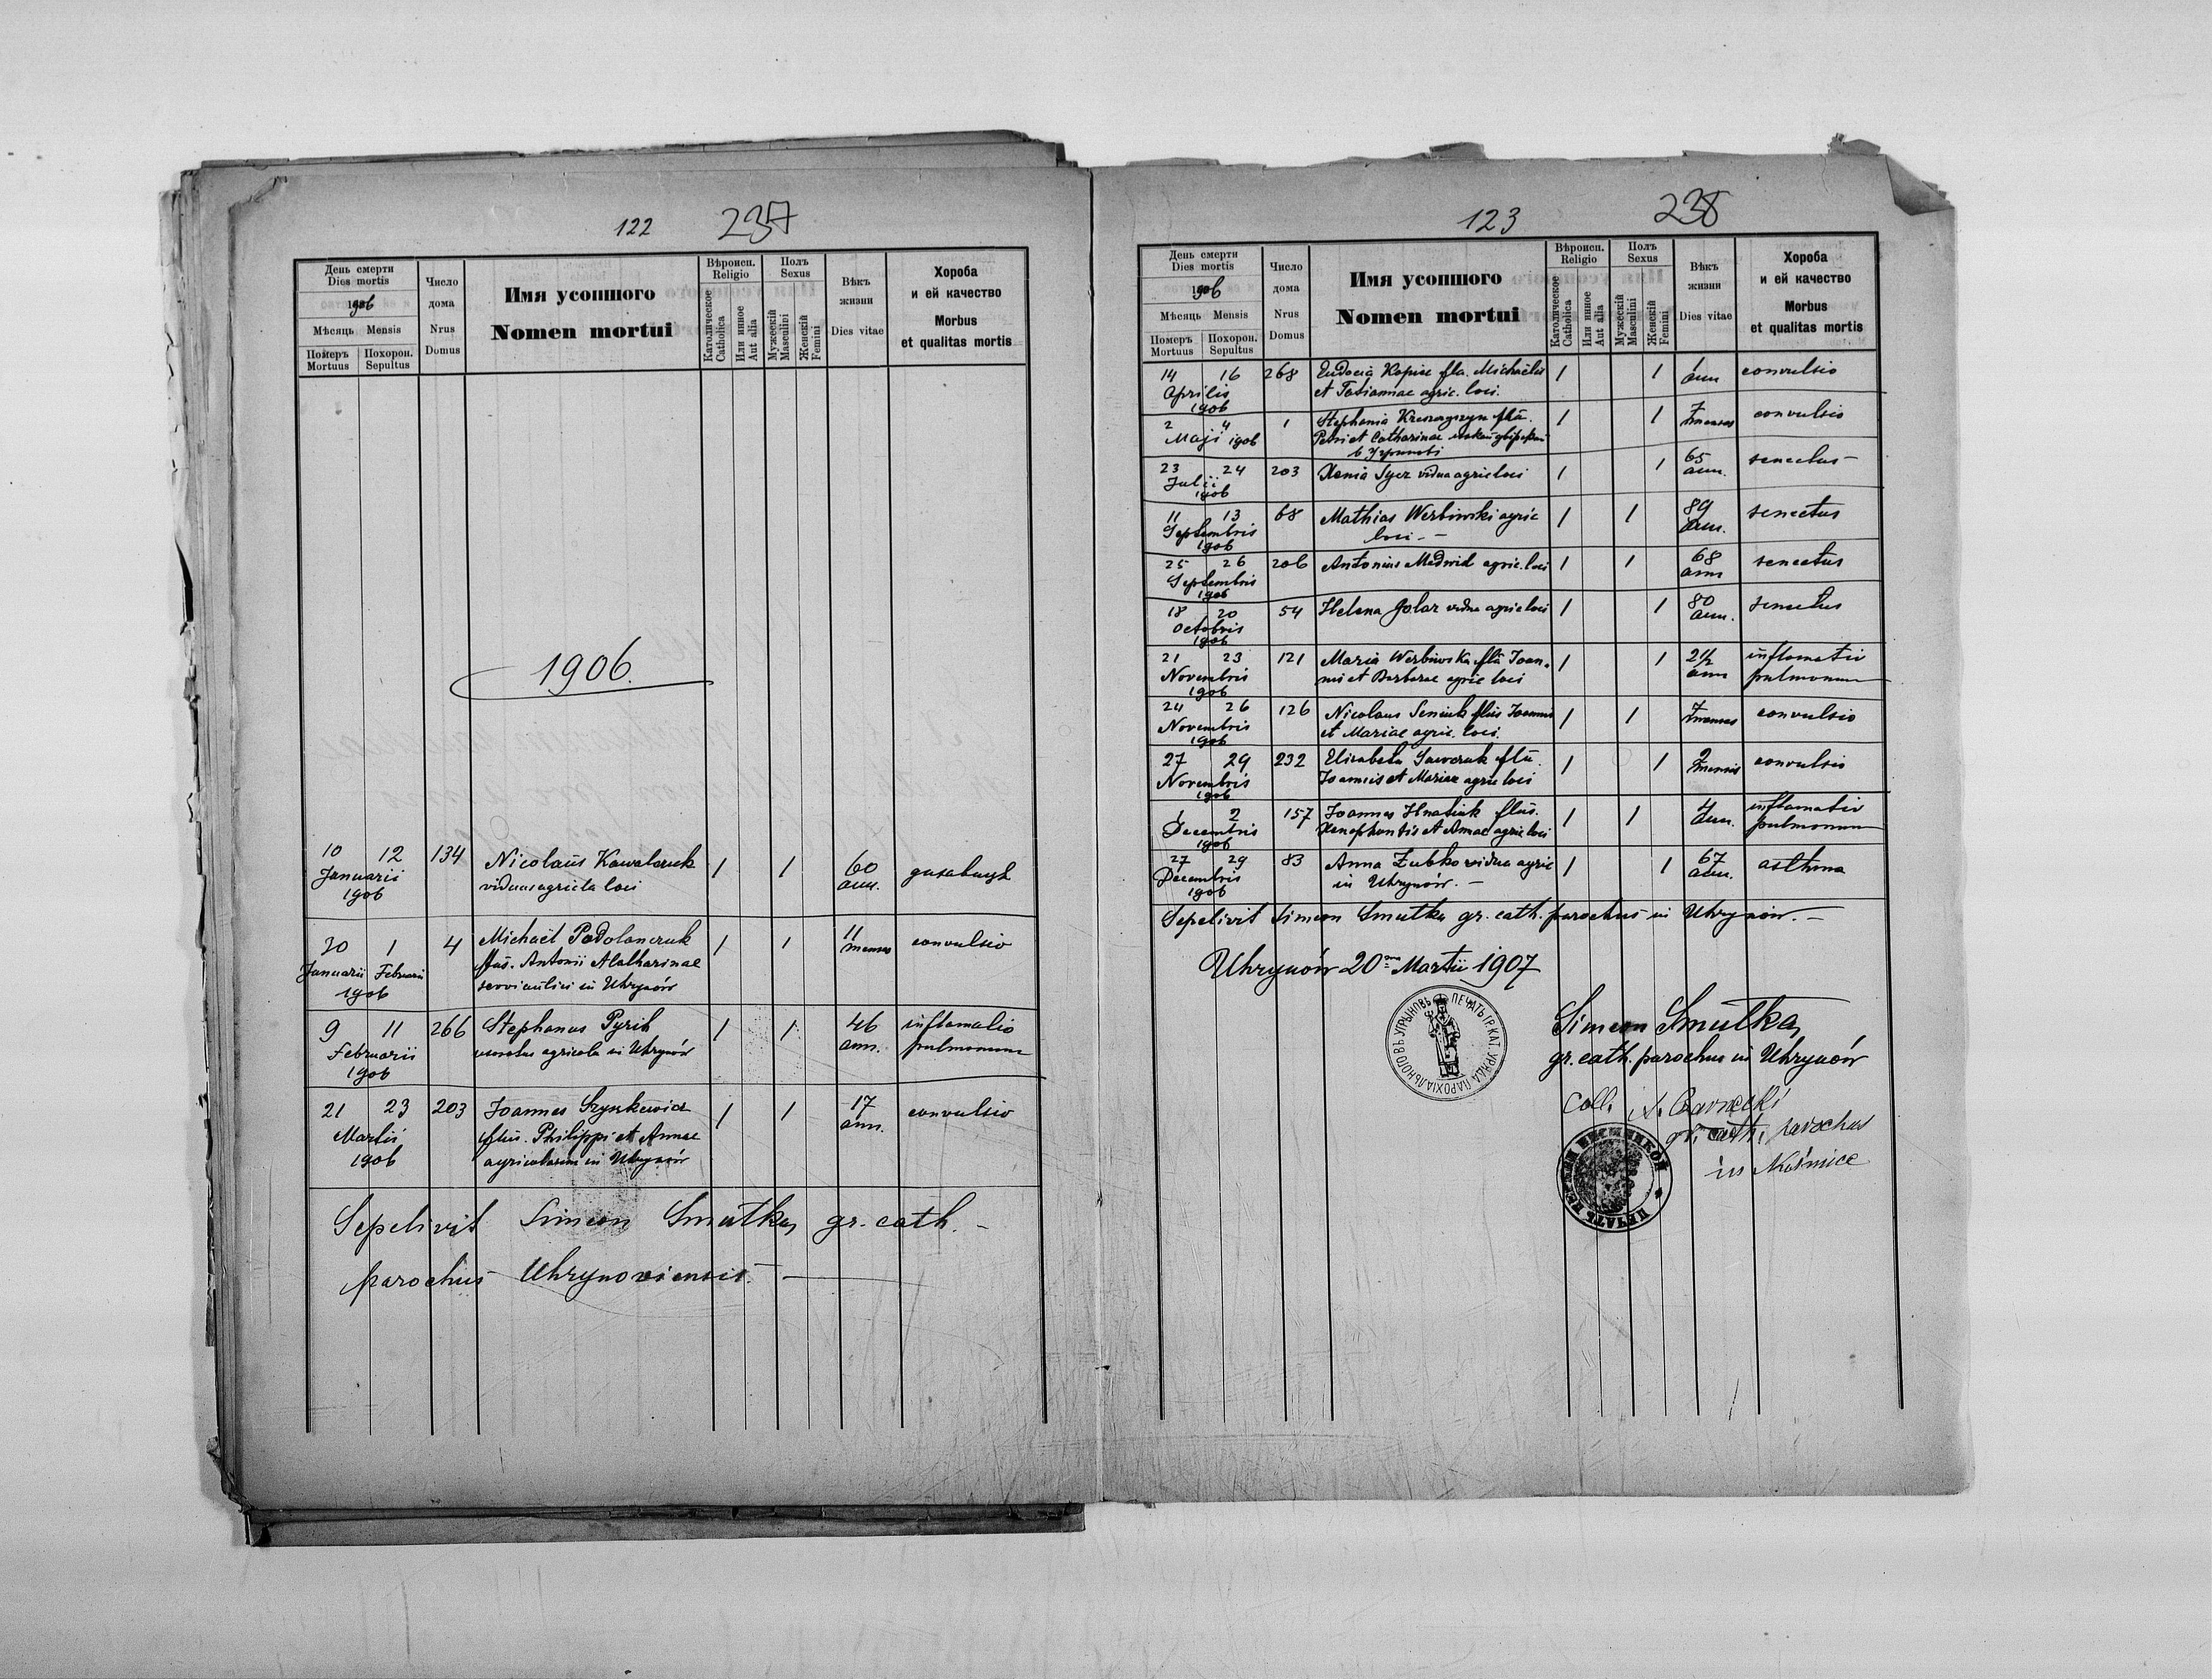 122 237
День смерти
Dies mortis
1906
Мѣсяць Mensis
Померъ Mortuus
Похорон. Sepultus
Число дома
Nrus Domus
Имя усопшого
Nomen mortui
Вѣроисп.
Religio
Католическое Catholica
Или инное Aut alia
Полъ
Sexus
Мужескій Masculini
Женскій Femini
Вѣкъ жизни
Dies vitae
Хороба
и ей качество
Morbus
et qualitas mortis
1906.
10 12 134 Nicolaus Kowalczuk 1 1 60
Januarii viduus agricola loci ann.
1906
30 1 4 Michaël Podolanczuk 1 1 11 convulsio
Januarii Februarii flius. Antonii Catharinae menses
1906 in Uhrynów
9 11 266 Stephanus Pyrih 1 1 46 inflamatio
Februarii agricola in Uhrynów ann. pulmonum
1906
21 23 203 Joannes Szynkewicz 1 1 17 convulsio
Martii flius. Philippi et Annae ann.
1906 agricolarum in Uhrynów
Sepelivit Simeon Smulka, gr. cath. –
parochus Uhrynoviensis. –
123 238
День смерти
Dies mortis
1906
Мѣсяць Mensis
Померъ Mortuus
Похорон. Sepultus
Число дома
Nrus Domus
Имя усопшого
Nomen mortui
Вѣроисп.
Religio
Католическое Catholica
Или инное Aut alia
Полъ
Sexus
Мужескій Masculini
Женскій Femini
Вѣкъ жизни
Dies vitae
Хороба
и ей качество
Morbus
et qualitas mortis
14 16 268 Eudocia fla. Michaëlis 1 1 convulsio
Aprilis et Tatiannae agric. loci. ann
1906
2 4 1 Stephania flia. 1 1 7 convulsio
Maji 1906 Petri et Catharinae menses
23 24 203 Xenia Sycz vidua agric loci 1 1 65 senectus –
Julii ann.
1906
11 13 68 Mathias Werbiwski agric 1 1 89 senectus
Septembris loci. – ann.
1906
25 26 206 Antonius Medwid agric. loci 1 1 68 senectus
Septembris ann
1906
18 20 54 Helena Golar vidua agric loci 1 1 80 senectus
Octobris ann.
1906
21 23 121 Maria Werbiwska flia Joan- 1 1 2½ inflamatio
Novembris nis et Barbarae agric loci ann pulmonum
1906
24 26 126 Nicolaus Seniuk flius Joannis 1 1 7 convulsio
Novembris et Mariae agric. loci. menses
1906
27 29 232 Elisabeta Sawczuk flia. 1 1 2 convulsio
Novembris Joannis et Mariae agric loci menses
1906
1 2 157 Joannes Hnatiuk flius. 1 1 4 inflamatio
Decembris Xenophontis et Annae agric loci ann. pulmonum
1906
27 29 83 Anna Zubko vidua agric 1 1 67 asthma
Decembris in Uhrynów. – ann.
1906
Sepelivit Simeon Smulka gr. cath. parochus in Uhrynów. –
Uhrynów 20 Martii 1907
ПЕЧАТЬ ГР. КАТ. УРЯДА ПАРОХІАЛЬНОГО ВЪ УГРЫНОВЪ
Simeon Smulka,
gr. cath. parochus in Uhrynów
Coll.
gr. cath. parochus
in